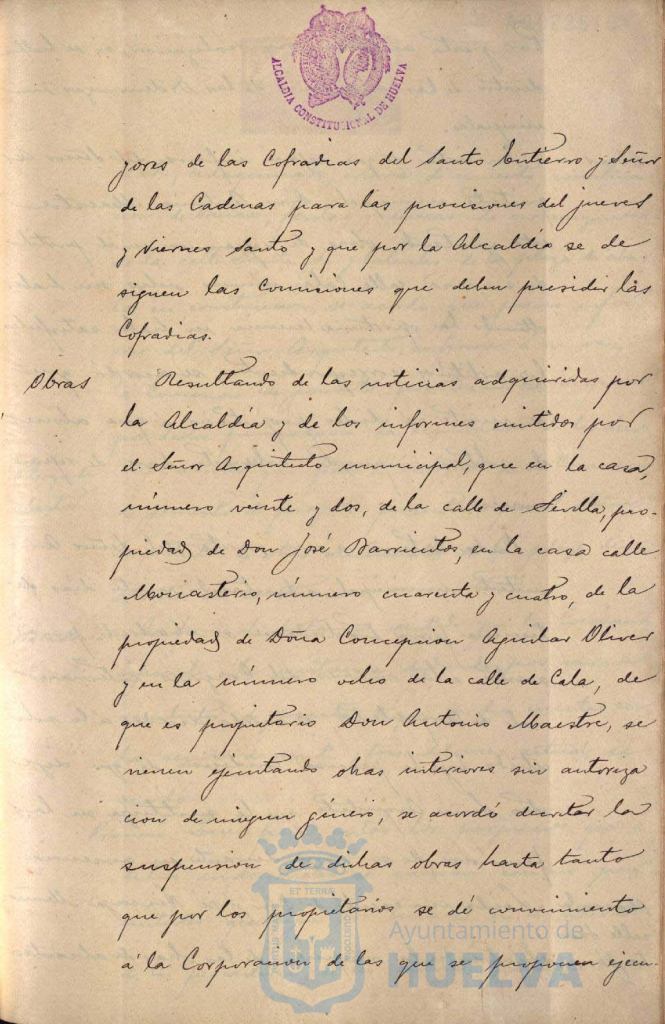 ALCALDIA CONSTITUCIONAL DE HUELVA
yores de las Cofradias del Santo Entierro y Señor
de las Cadenas para las procisiones del jueves
y Viernes Santo y que por la Alcaldia se de
signen las Comisiones que deben presidir las
Cofradias.
Obras
Resultando de las noticias adquiridas por
la Alcaldía y de los informes emitidos por
el Señor Arquitecto municipal, que en la casa,
número veinte y dos, de la calle de Sevilla, pro-
piedad de Don José Barrientos, en la casa calle
Monasterio, número cuarenta y cuatro, de la
propiedad de Doña Concepcion Aguilar Oliver
y en la número ocho de la calle de Cala, de
que es propietario Don Antonio Maestre, se
vienen ejecutando obras interiores sin autoriza
cion de ningun género, se acordó decretar la
suspension de dichas obras hasta tanto
que por los propietarios se dé conocimiento
á la Corporacion de las que se proponen ejecu-
Ayuntamiento de
HUELVA